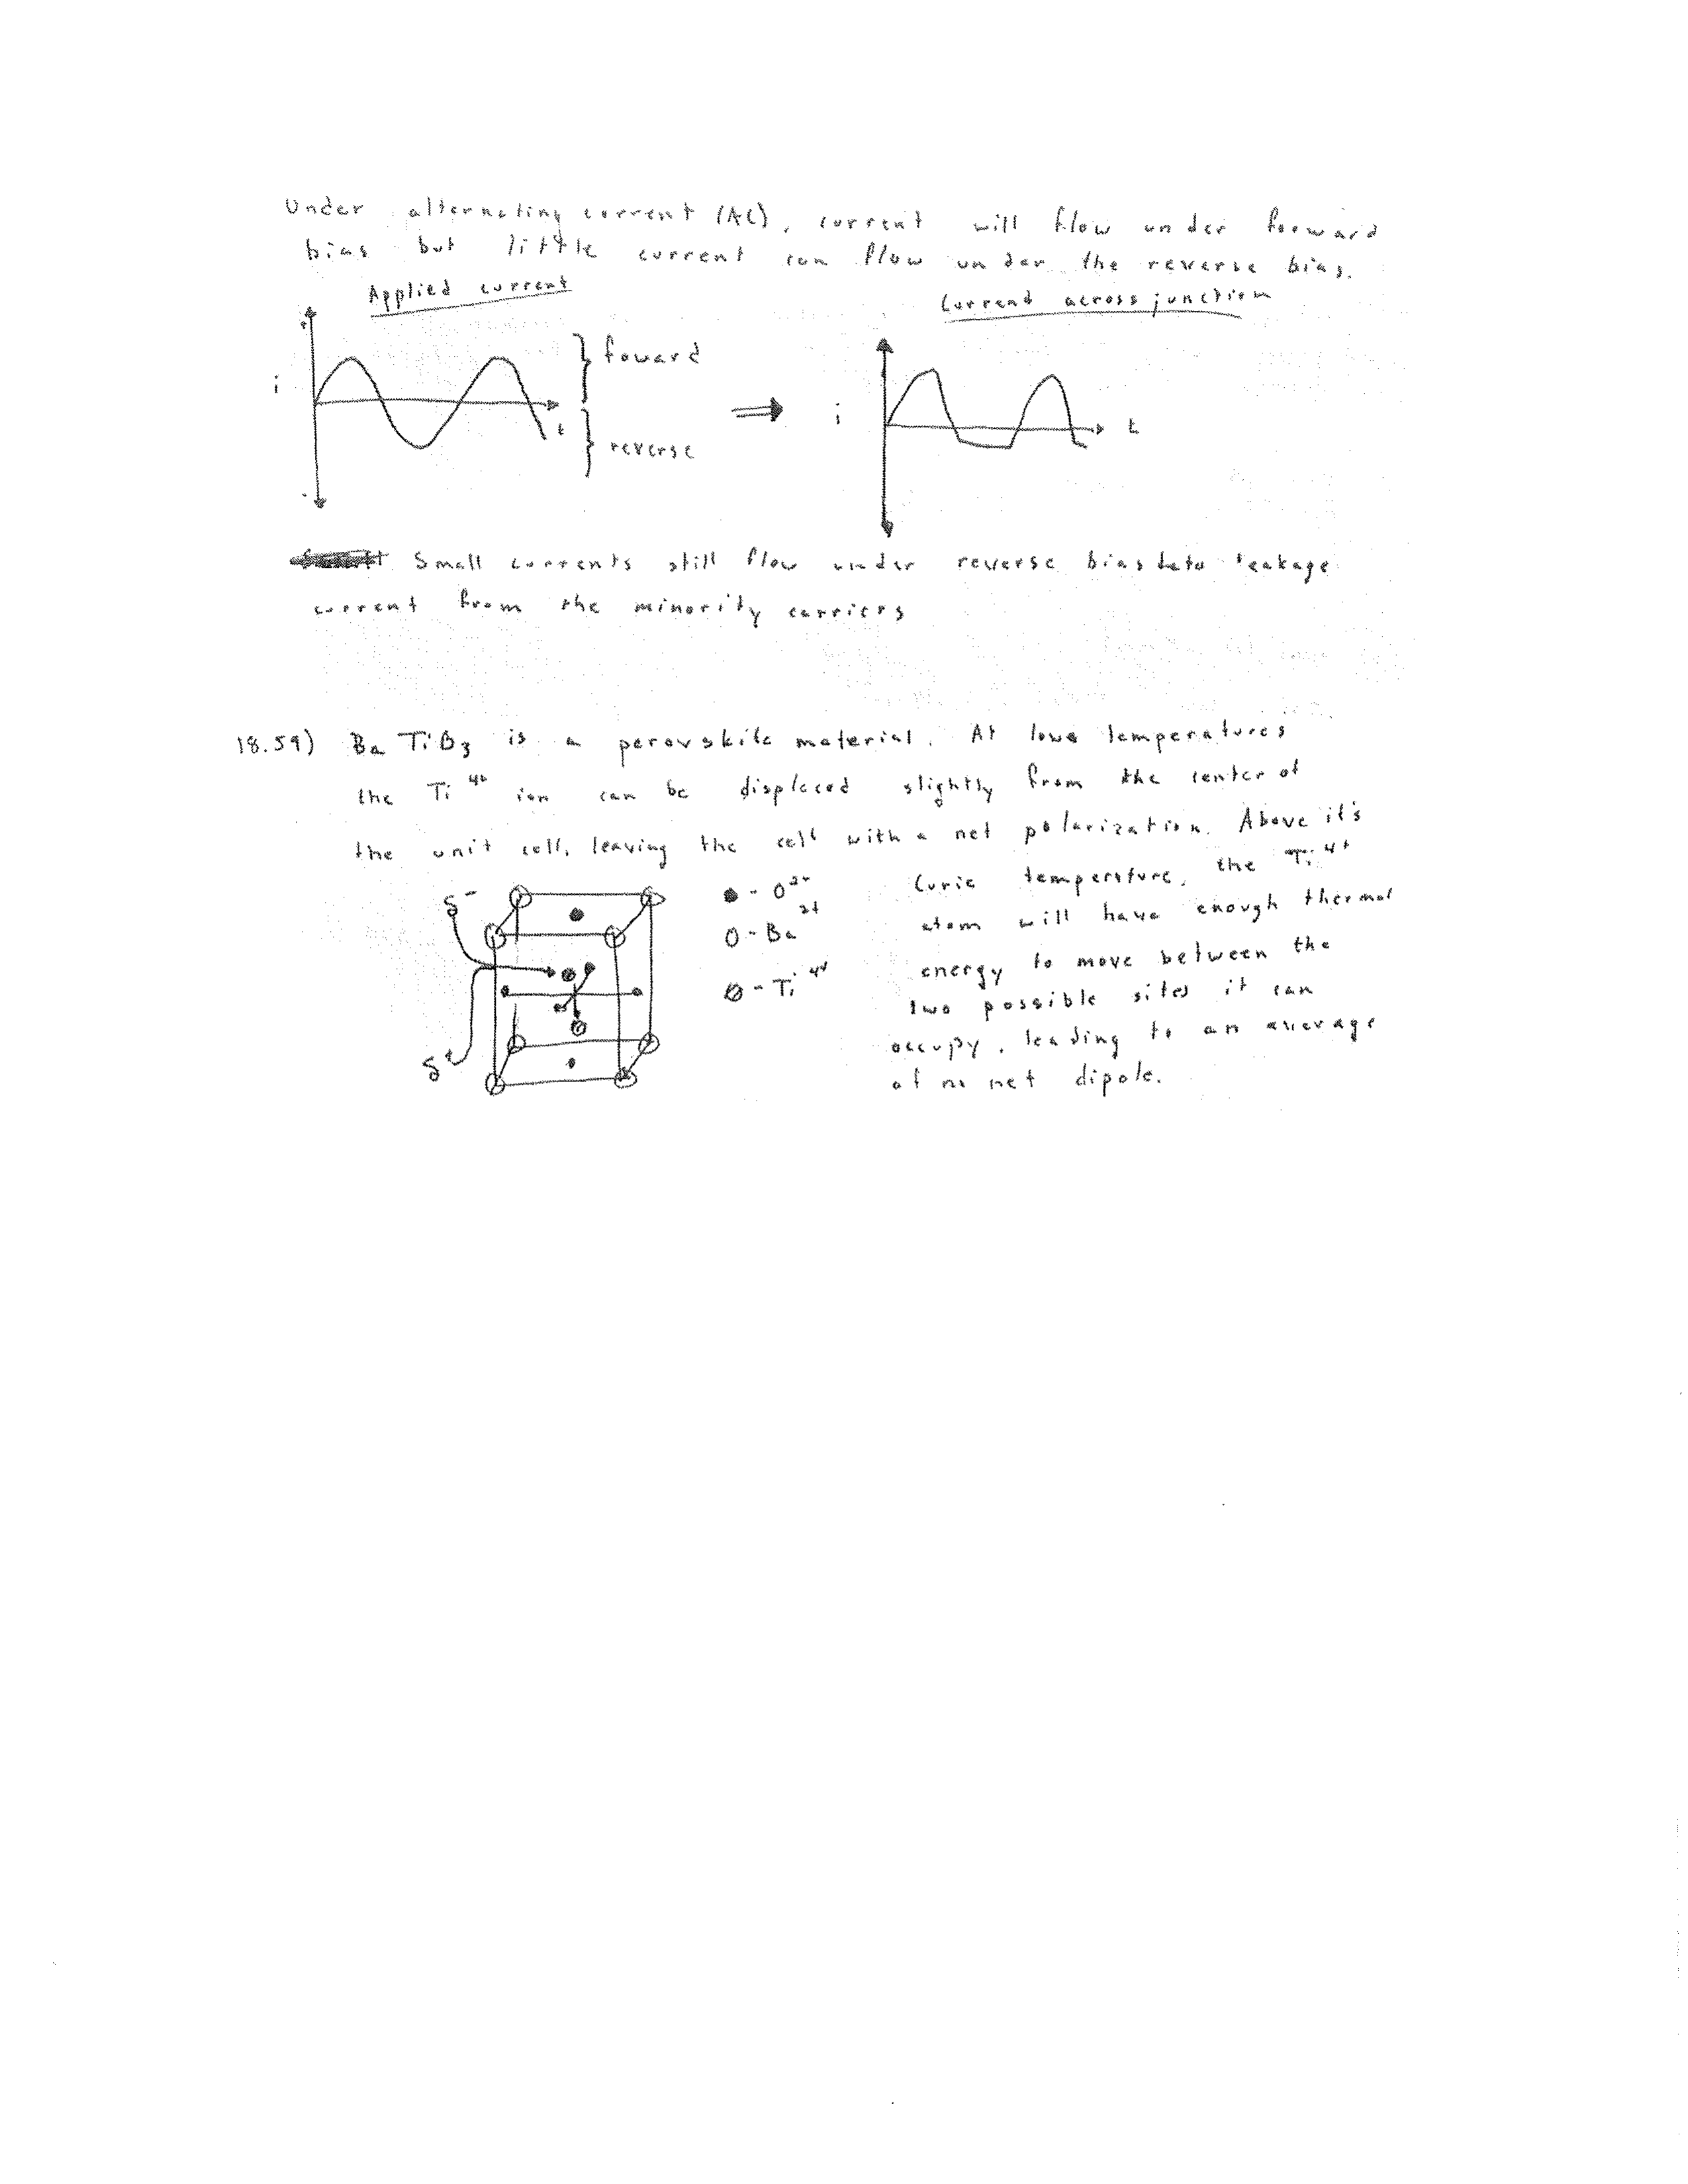 Under alternating current (AC), current will flow under forward
bias but little current can flow under the reverse bias.
Applied current
Current across junction
+
i
t
-
} foward
} reverse
⇒
i
t
Small currents still flow under reverse bias leakage
current from the minority carriers
18.59) BaTiO3 is a perovskite material. At low temperatures
the Ti4+ ion can be displaced slightly from the center of
the unit cell, leaving the cell with a net polarization. Above it's
Curie temperature, the Ti4+
atom will have enough thermal
energy to move between the
two possible sites it can
occupy, leading to an average
of no net dipole.
δ-
δ+
● - O2-
O - Ba2+
⊘ - Ti4+